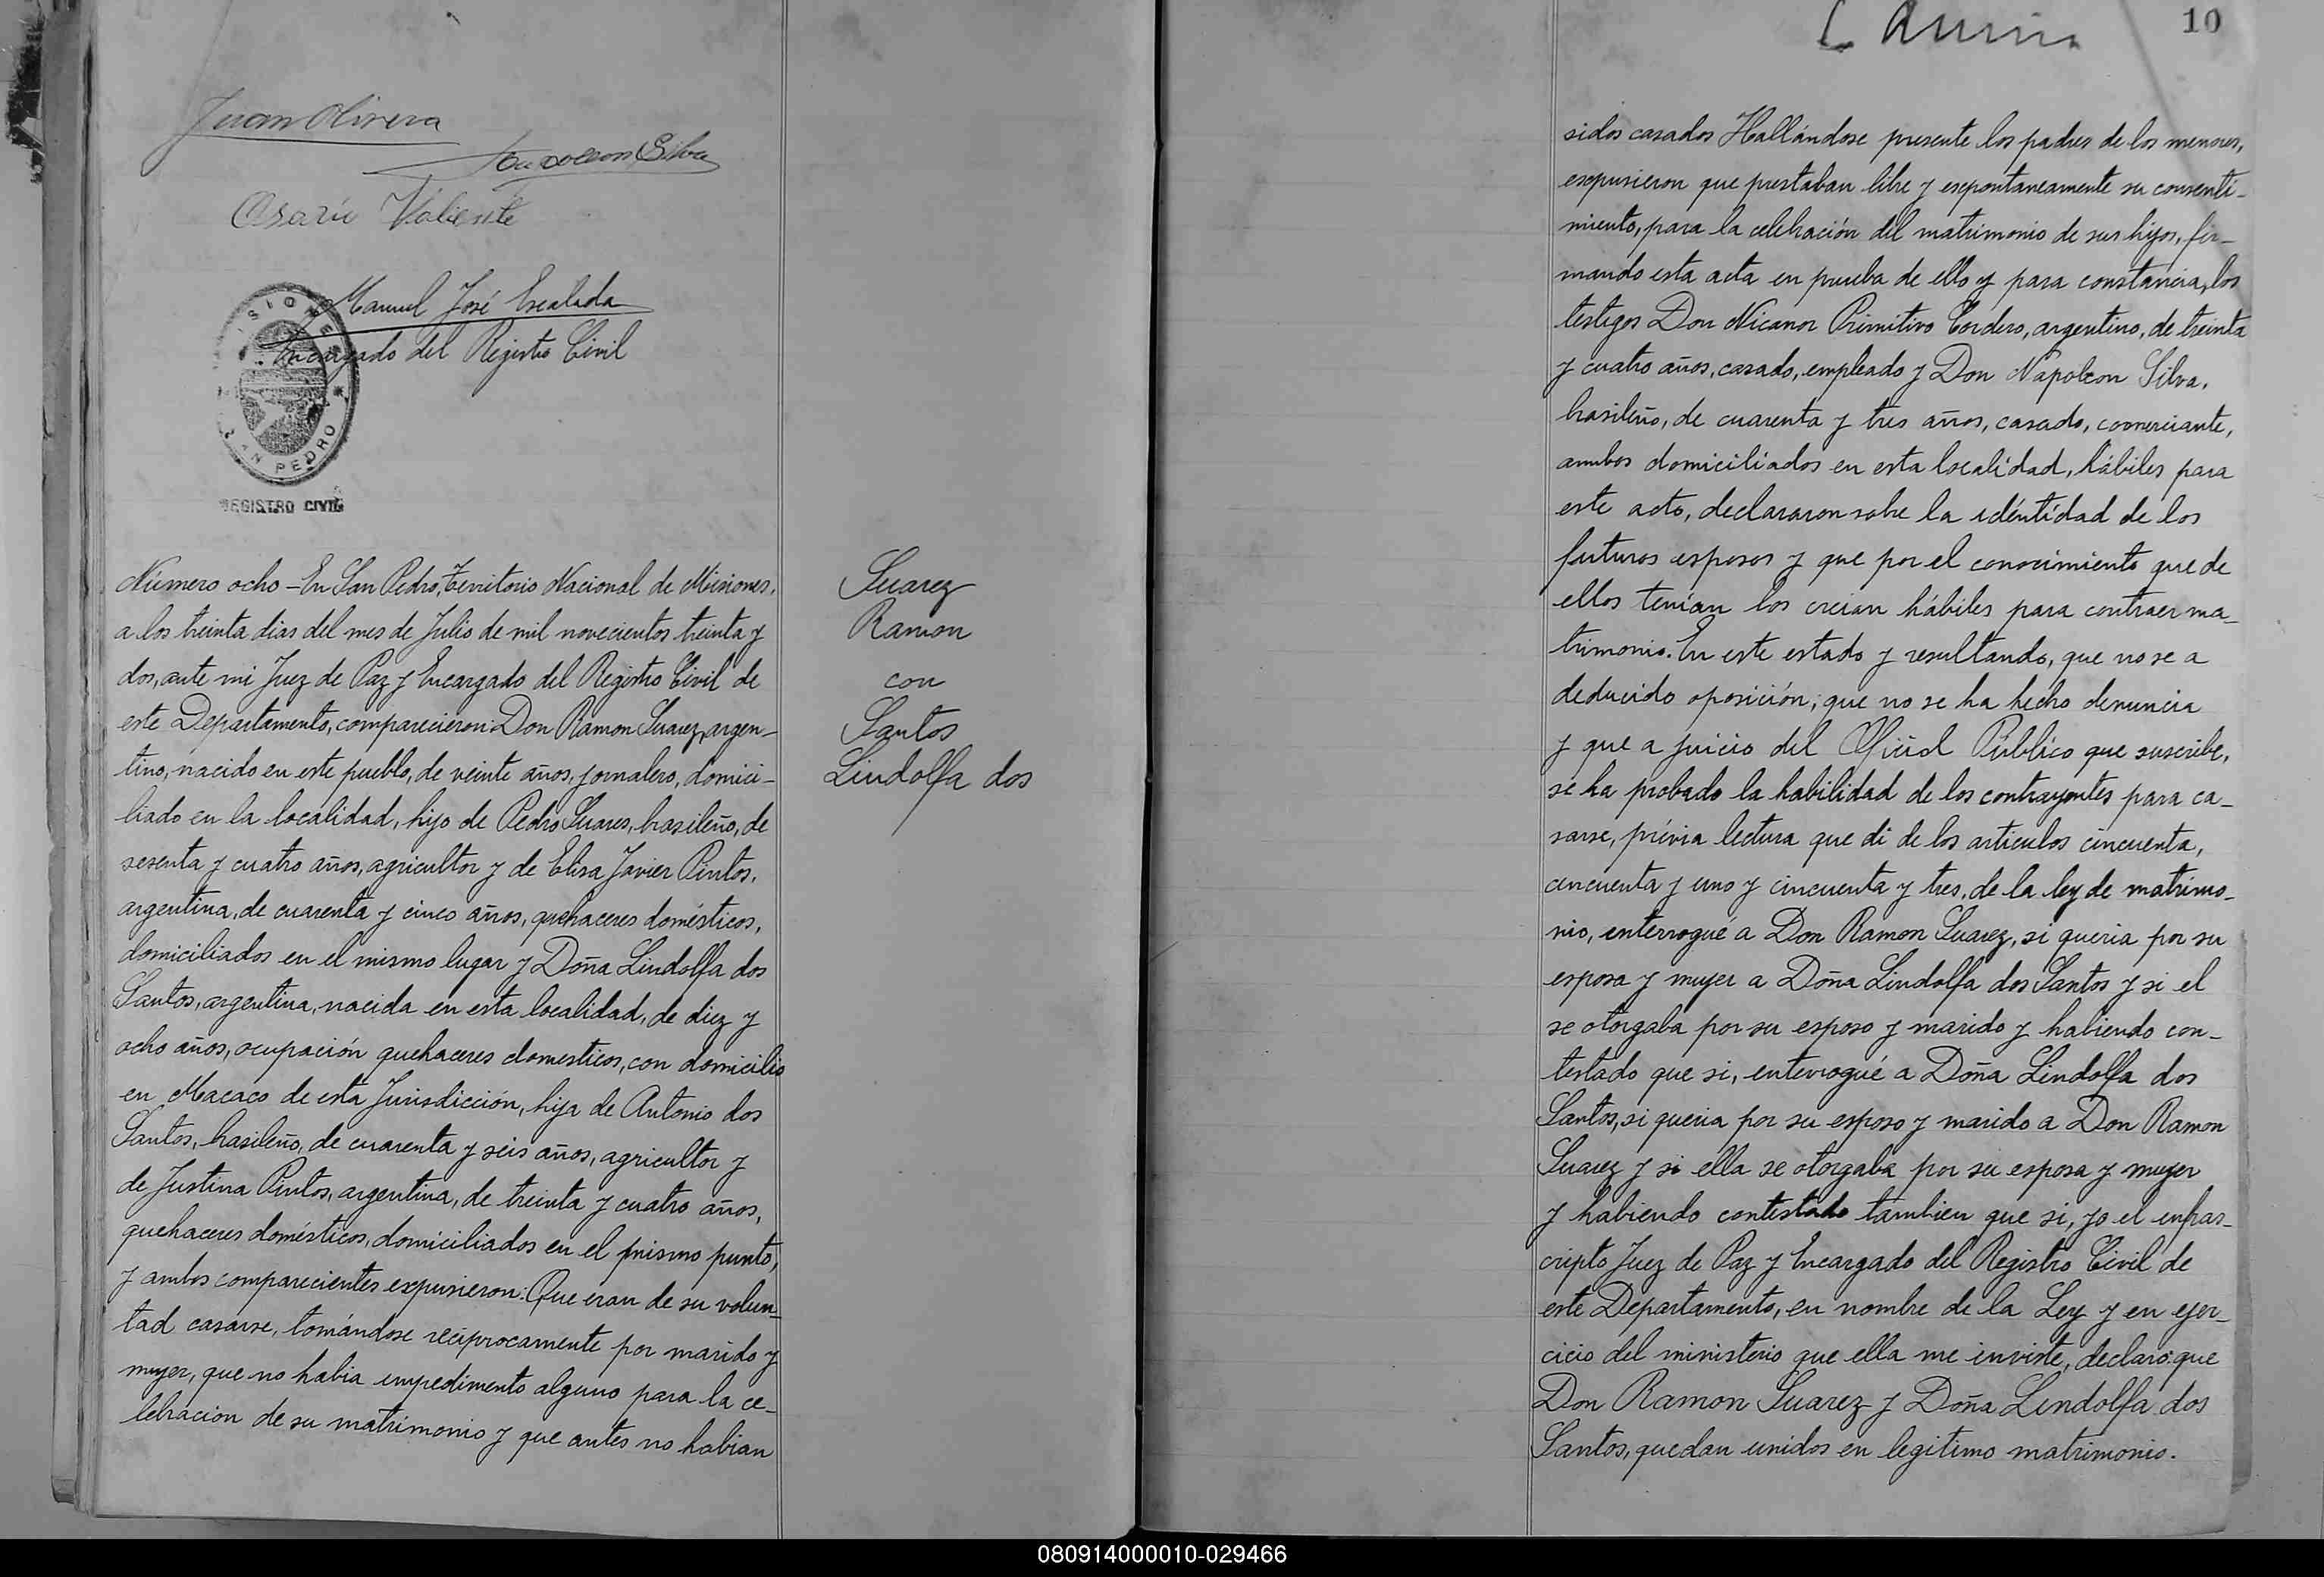 Juan Olivera
Napoleon Silva
Valiente
Manuel José Escalada
Encargado del Registro Civil
MISIONES
SAN PEDRO
REGISTRO CIVIL
Número ocho - En San Pedro, Territorio Nacional de Misiones,
a los treinta dias del mes de Julio de mil novecientos treinta y
dos, ante mi Juez de Paz y Encargado del Registro Civil de
este Departamento, comparecieron: Don Ramon Suarez, argen-
tino, nacido en este pueblo, de veinte años, jornalero, domici-
liado en la localidad, hijo de Pedro Suares, brasileño, de
sesenta y cuatro años, agricultor y de Elisa Javier Pintos,
argentina, de cuarenta y cinco años, quehaceres domésticos,
domiciliados en el mismo lugar y Doña Lindolfa dos
Santos, argentina, nacida en esta localidad, de diez y
ocho años, ocupación quehaceres domesticos, con domicilio
en Macaco de esta Jurisdicción, hija de Antonio dos
Santos, brasileño, de cuarenta y seis años, agricultor y
de Justina Pintos, argentina, de treinta y cuatro años,
quehaceres domésticos, domiciliados en el mismo punto,
y ambos comparecientes expusieron: Que eran de su volun-
tad casarse, tomándose reciprocamente por marido y
mujer, que no habia impedimento alguno para la ce-
lebracion de su matrimonio y que antes no habian
Suarez
Ramon
con
Santos
Lindolfa dos
10
sidos casados Hallándose presente los padres de los menores,
expusieron que prestaban libre y expontaneamente su consenti-
miento, para la celebración del matrimonio de sus hijos, fir-
mando esta acta en prueba de ello y para constancia, los
testigos Don Nicanor Primitivo Cordero, argentino, de treinta
y cuatro años, casado, empleado y Don Napoleon Silva,
brasileño, de cuarenta y tres años, casado, comerciante,
ambos domiciliados en esta localidad, hábiles para
este acto, declararon sobre la idéntidad de los
futuros esposos y que por el conocimiento que de
ellos tenían los creian hábiles para contraer ma-
trimonio. En este estado y resultando, que no se a
deducido oposición; que no se ha hecho denuncia
y que a juicio del Oficial Público que suscribe,
se ha probado la habilidad de los contrayentes para ca-
sarse, prévia lectura que di de los articulos cincuenta,
cincuenta y uno y cincuenta y tres, de la ley de matrimo-
nio, interrogué a Don Ramon Suarez, si queria por su
esposa y mujer a Doña Lindolfa dos Santos y si el
se otorgaba por su esposo y marido y habiendo con-
testado que si, interrogué a Doña Lindolfa dos
Santos, si queria por su esposo y marido a Don Ramon
Suarez y si ella se otorgaba por su esposa y mujer
y habiendo contestado tambien que si, yo el infras-
cripto Juez de Paz y Encargado del Registro Civil de
este Departamento, en nombre de la Ley y en ejer-
cicio del ministerio que ella me inviste, declaro: que
Don Ramon Suarez y Doña Lindolfa dos
Santos, quedan unidos en legitimo matrimonio.
080914000010-029466